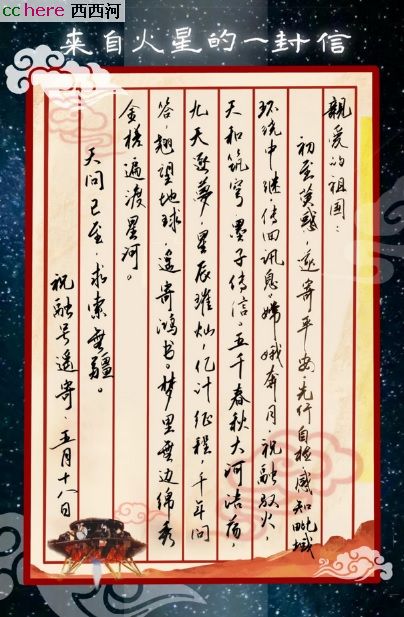 cchere 西西河
来自火星的一封信
親爱的祖国：
初至荧惑，遥寄平安。先行自检，感知毗域
环绕中继，传回讯息。嫦娥奔月，祝融驭火，
天和筑穹，墨子传信。五千春秋大河浩荡，
九天逐夢，星辰璀灿，亿计征程，千年问
答，翘望地球，遥寄鸿书。梦里無边绵秀
金槎遍渡星河。
天问已至，求索無疆。
祝融号遥寄 五月十八日